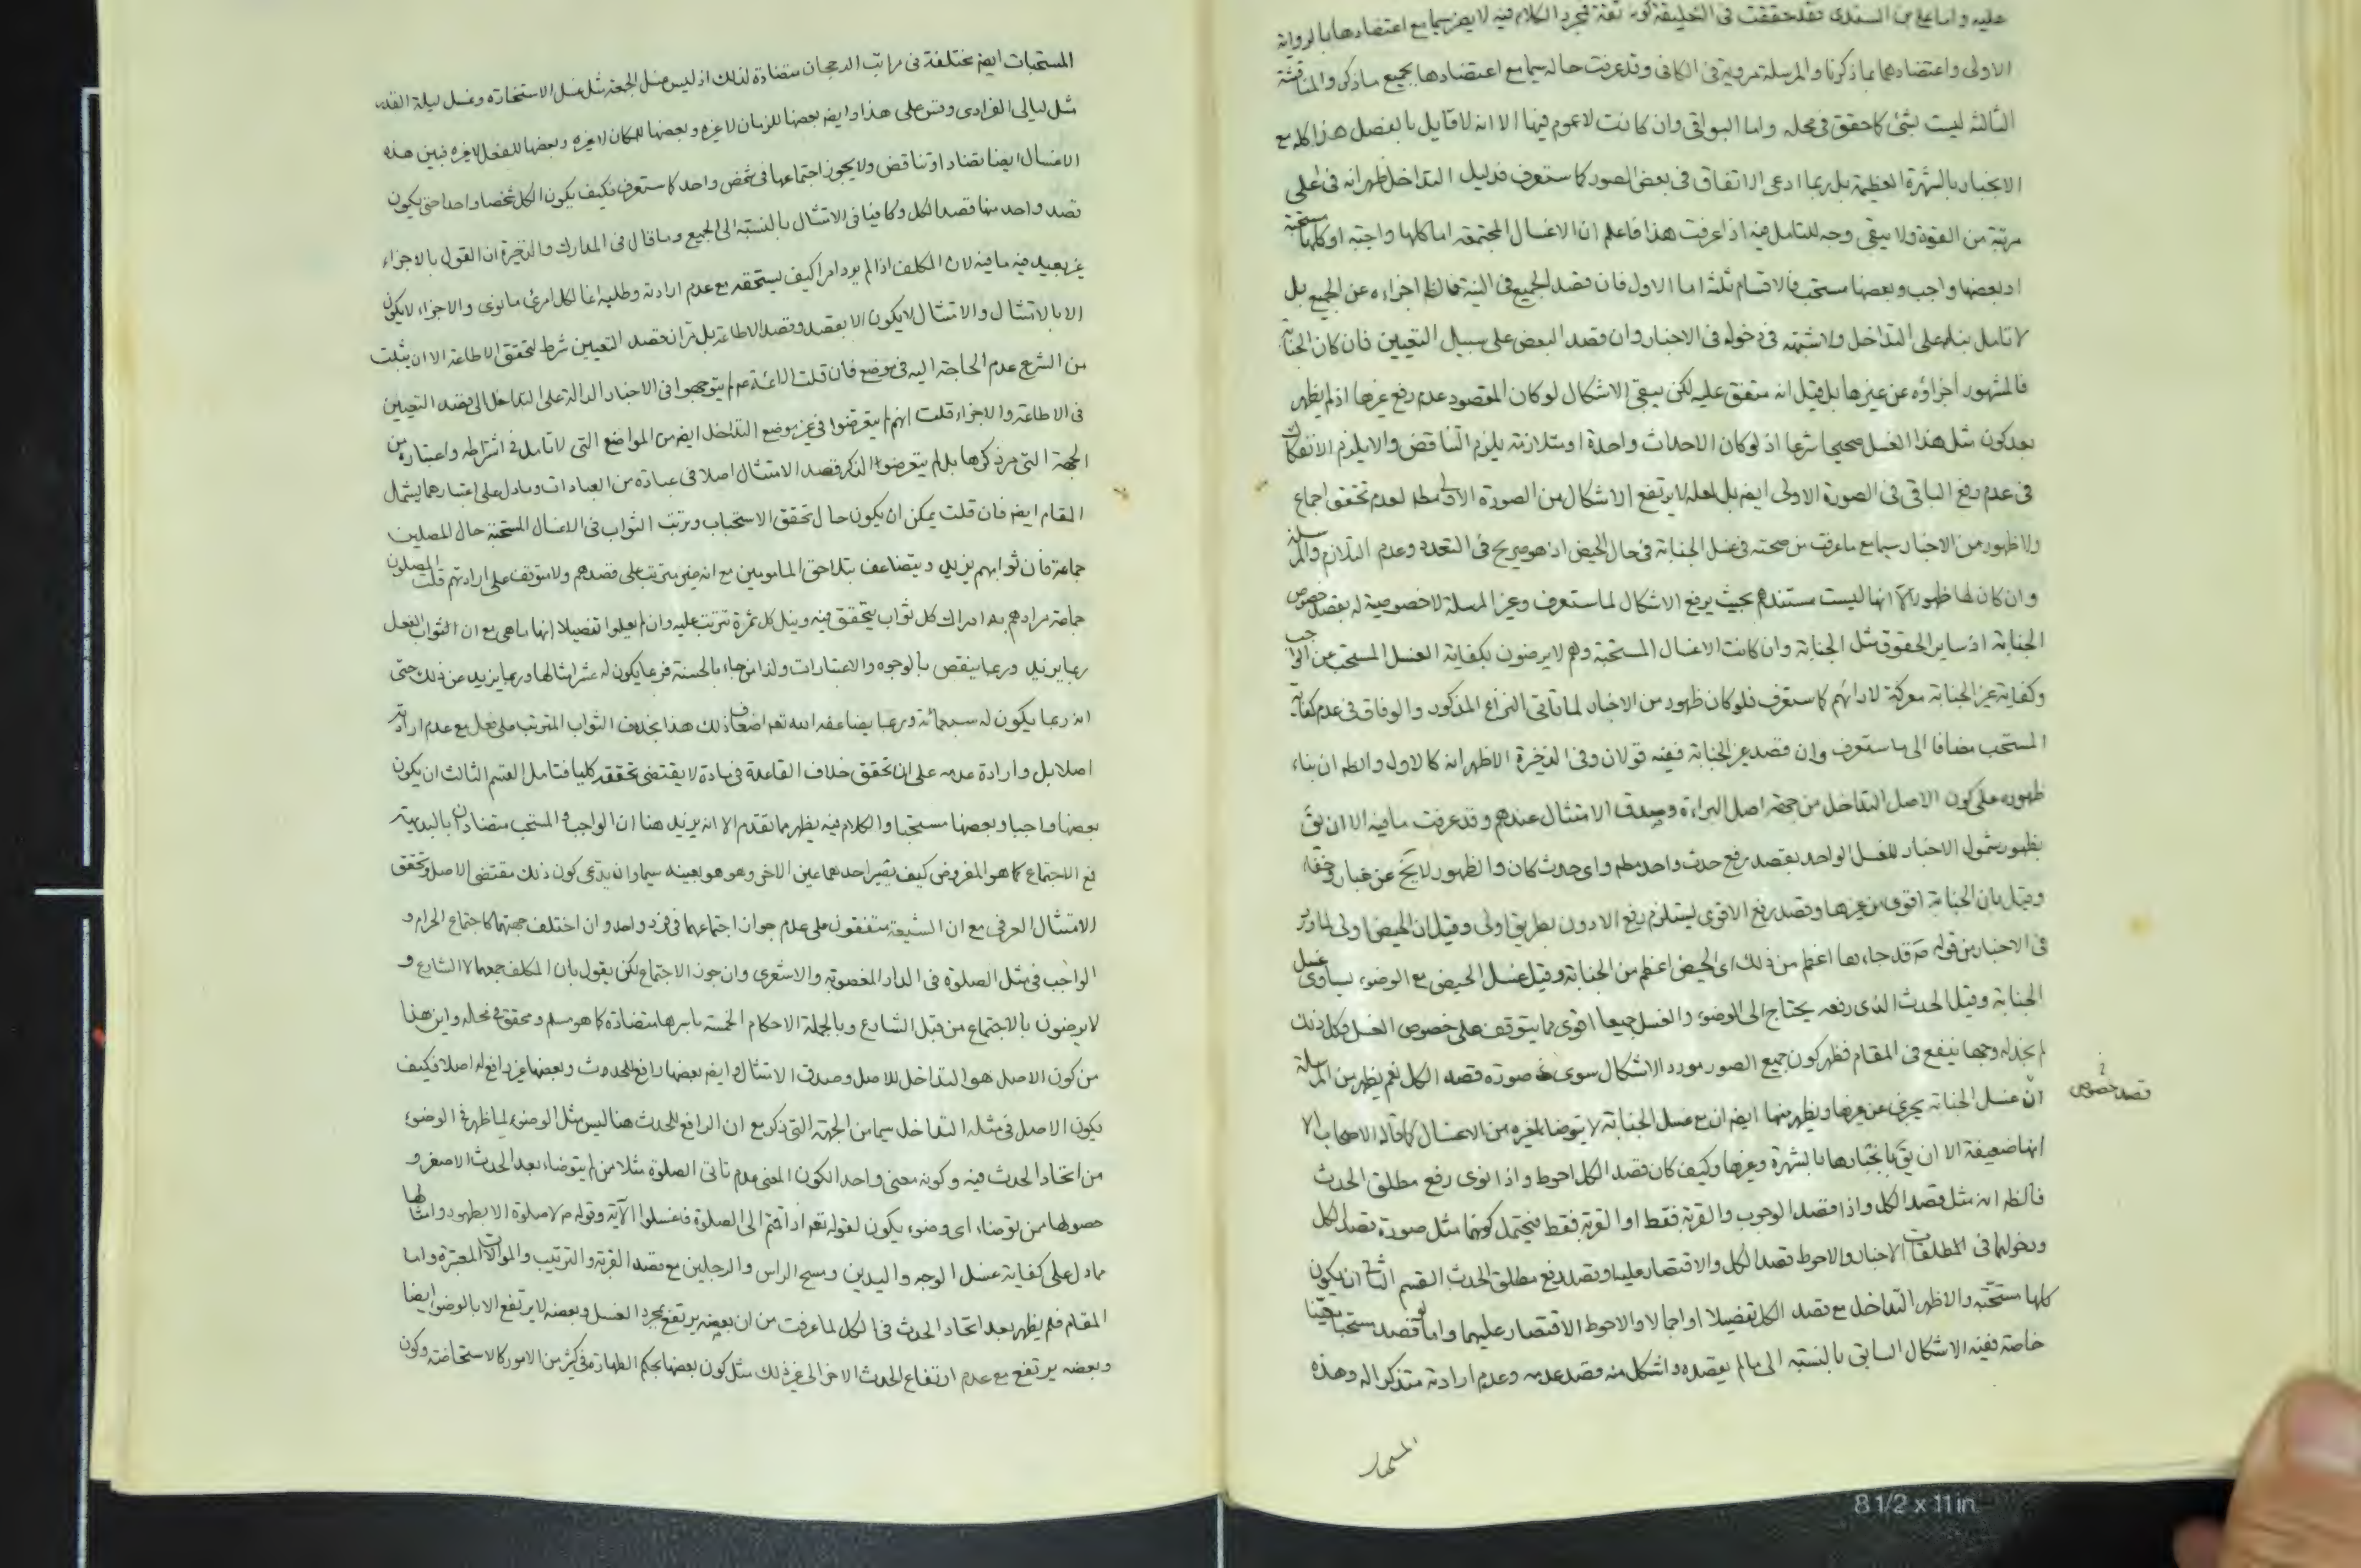 عليه واما علي بن السندى فقد حققت فى التعليقة كونه ثقة فمجرد الكلام فيه لا يضر سيما مع اعتضادها بالرواية
الاولى واعتضادهما بما ذكرنا والمرسلة مروية فى الكافى وقد عرفت حاله سيما مع اعتضادها بجميع ما ذكر والمناقشة
الثالثة ليست بشئ كما حقق فى محله واما البواقى وان كانت لا عموم فيها الا انه لا قايل بالفصل هذا كله مع
الانجبار بالشهرة العظيمة بل ربما ادعى الاتفاق فى بعض الصور كما ستعرف فدليل التداخل ظهر انه فى اعلى
مرتبة من القوة ولا يبقى وجه للتامل فيه اذا عرفت هذا فاعلم ان الاغسال المجتمعة اما كلها واجبة او كلها مستحبة
او بعضها واجب وبعضها مستحب فالاقسام ثلثة اما الاول فان قصد الجميع فى النية فالظ اجزاءه عن الجميع بل
لا تامل بناء على التداخل ولا شبهة فى دخوله فى الاخبار وان قصد البعض على سبيل التعيين فان كان الجنابة
فالمشهور اجزاؤه عن غيرها بل قيل انه متفق عليه لكن يبقى الاشكال لو كان المقصود عدم رفع غيرها اذ لم يظهر
بعد كون مثل هذا الغسل صحيحا شرعا اذ لو كان الاحداث واحدة او متلازمة يلزم التناقض والا يلزم الانفكاك
فى عدم رفع الباقى فى الصورة الاولى ايضا بل لعله لا يرتفع الاشكال من الصورة الاولى مط لعدم تحقق اجماع
ولا ظهور من الاخبار سيما مع ما عرفت من صحته فى غسل الجنابة فى حال الحيض اذ هو صريح فى التعدد وعدم التلازم والمرسلة
وان كان لها ظهور الا انها ليست مستندهم بحيث يرفع الاشكال لما ستعرف وغير المرسلة لا خصوصية له بقصد خصوص
الجنابة اذ ساير الحقوق مثل الجنابة وان كانت الاغسال المستحبة وهم لا يرضون بكفاية الغسل المستحب عن الواجب
وكفاية غير الجنابة معركة لارائهم كما ستعرف فلو كان ظهور من الاخبار لما تاتى النزاع المذكور والوفاق فى عدم كفاية
المستحب مضافا الى ما ستعرف وان قصد غير الجنابة ففيه قولان وفى الذخيرة الاظهر انه كالاول والظ ان بناء
ظهوره على كون الاصل التداخل من جهة اصل البراءة وصدق الامتثال عندهم وقد عرفت ما فيه الا ان يق
بظهور شمول الاخبار للغسل الواحد بقصد رفع حدث واحد مط واى حدث كان والظهور لا يخ عن غبار وخفاء
وقيل بان الجنابة اقوى من غيرها وقصد رفع الاقوى يستلزم رفع الادون بطريق اولى وقيل ان الحيض اولى لما ورد
فى الاخبار من قوله ص قد جاءها اعظم من ذلك اى الحيض اعظم من الجنابة وقيل غسل الحيض مع الوضوء يساوى غسل
الجنابة وقيل الحدث الذى رفعه يحتاج الى الوضوء والغسل جميعا اقوى مما يتوقف على خصوص الغسل وكل ذلك
لم نجد له وجها ينفع فى المقام فظهر كون جميع الصور مورد الاشكال سوى صورة قصد الكل نعم يظهر من المرسلة
قصد خصوص
ان غسل الجنابة يجزى عن غيرها ويظهر منها ايضا ان مع غسل الجنابة لا يتوضا لغيره من الاغسال كما قاله الاصحاب الا
انها ضعيفة الا ان يق بانجبارها بالشهرة وغيرها وكيف كان قصد الكل احوط واذا نوى رفع مطلق الحدث
فالظ انه مثل قصد الكل واذا قصد الوجوب والقربة فقط او القربة فقط فيحتمل كونهما مثل صورة قصد الكل
ودخولهما فى اطلاقات الاخبار والاحوط قصد الكل والاقتصار عليه او قصد رفع مطلق الحدث القسم الثانى ان يكون
كلها مستحبة والاظهر التداخل مع قصد الكل تفصيلا او اجمالا والاحوط الاقتصار عليهما واما لو قصد مستحبا معينا
خاصة ففيه الاشكال السابق بالنسبة الى ما لم يقصده واشكل منه قصد عدمه وعدم ارادته متذكرا له وهذه
المستحبات ايضا مختلفة فى مراتب الرجحان متضادة لذلك اذ ليس غسل الجمعة مثل غسل الاستخارة وغسل ليلة القدر
مثل ليالى الفرادى وقس على هذا وايضا بعضها للزمان لا غيره وبعضها للمكان لا غيره وبعضها للفعل لا غيره فبين هذه
الاغسال ايضا تضاد او تناقض ولا يجوز اجتماعها فى شخص واحد كما ستعرف فكيف يكون الكل شخصا واحدا حتى يكون
قصد واحد منها قصد الكل وكافيا فى الامتثال بالنسبة الى الجميع وما قال فى المدارك والذخيرة ان القول بالاجزاء
غير بعيد فيه ما فيه لان المكلف اذا لم يرد امرا كيف يستحقه مع عدم ارادته وطلبه انما لكل امرئ ما نوى والاجزاء لا يكون
الا بالامتثال والامتثال لا يكون الا بقصد وقصد الاطاعة بل مر ان قصد التعيين شرط لتحقق الاطاعة الا ان يثبت
من الشرع عدم الحاجة اليه فى موضع فان قلت الائمة ع لم يتوجهوا فى الاخبار الدالة على التداخل الى قصد التعيين
فى الاطاعة والاجزاء قلت انهم لم يتعرضوا فى غير موضع التداخل ايضا من المواضع التى لا تامل فى اشتراطه واعتباره من
الجهة التى مر ذكرها بل لم يتعرضوا لذكر قصد الامتثال اصلا فى عبادة من العبادات وما دل على اعتبارهما يشمل
المقام ايضا فان قلت يمكن ان يكون حال تحقق الاستحباب وترتب الثواب فى الاغسال المستحبة حال المصلين
جماعة فان ثوابهم يزيد ويتضاعف بتلاحق المامومين مع انه غير مترتب على قصدهم ولا متوقف على ارادتهم قلت المصلون
جماعة مرادهم بها ادراك كل ثواب يتحقق فيه ونيل كل ثمرة تترتب عليه وان لم يعلموا تفصيلا انها ما هى مع ان الثواب الفعل
ربما يزيد وربما ينقص بالوجوه والاعتبارات ولذا من جاء بالحسنة فربما يكون له عشر امثالها وربما يزيد عن ذلك حتى
انه ربما يكون له سبعمائة وربما يضاعفه الله تعه اضعاف ذلك هذا بخلاف الثواب المترتب على فعل مع عدم ارادته
اصلا بل وارادة عدمه على ان تحقق خلاف القاعدة فى مادة لا يقتضى تحققه كليا فتامل القسم الثالث ان يكون
بعضها واجبا وبعضها مستحبا والكلام فيه يظهر مما تقدم الا انه يزيد هنا ان الواجب والمستحب متضادان بالبديهة
فمع الاجتماع كما هو المفروض كيف يصير احدهما عين الاخر وهو هو بعينه سيما وان يدعى كون ذلك مقتضى الاصل وتحقق
الامتثال العرفى مع ان الشيعة متفقون على عدم جواز اجتماعهما فى فرد واحد وان اختلف جهتهما كاجتماع الحرام و
الواجب فى مثل الصلوة فى الدار المغصوبة والاشعرى وان جوز الاجتماع لكن يقول بان المكلف جمعهما لا الشارع و
لا يرضون بالاجتماع من قبل الشارع وبالجملة الاحكام الخمسة باسرها متضادة كما هو مسلم ومحقق فى محله واين هذا
من كون الاصل هو التداخل للاصل وصدق الامتثال وايضا بعضها رافع للحدث وبعضها غير رافع له اصلا فكيف
يكون الاصل فى مثله التداخل سيما من الجهة التى ذكر مع ان الرافع للحدث هنا ليس مثل الوضوء لما ظهر فى الوضوء
من اتحاد الحدث فيه وكونه معنى واحدا لكون المعنى عدم تاتى الصلوة مثلا ممن لم يتوضا بعد الحدث الاصغر و
حصولها ممن توضا اى وضوء يكون لقوله تعه اذا قمتم الى الصلوة فاغسلوا الآية وقوله ص لا صلوة الا بطهور وامثالها
مما دل على كفاية غسل الوجه واليدين ومسح الراس والرجلين مع قصد القربة والترتيب والموالات المعتبرة واما
المقام فلم يظهر بعد اتحاد الحدث فى الكل لما عرفت من ان بعضه يرتفع بمجرد الغسل وبعضه لا يرتفع الا بالوضوء ايضا
وبعضه يرتفع مع عدم ارتفاع الحدث الاخر الى غير ذلك مثل كون بعضها بحكم الطهارة فى كثير من الامور كالاستحاضة وكون
8 1/2 x 11 in.